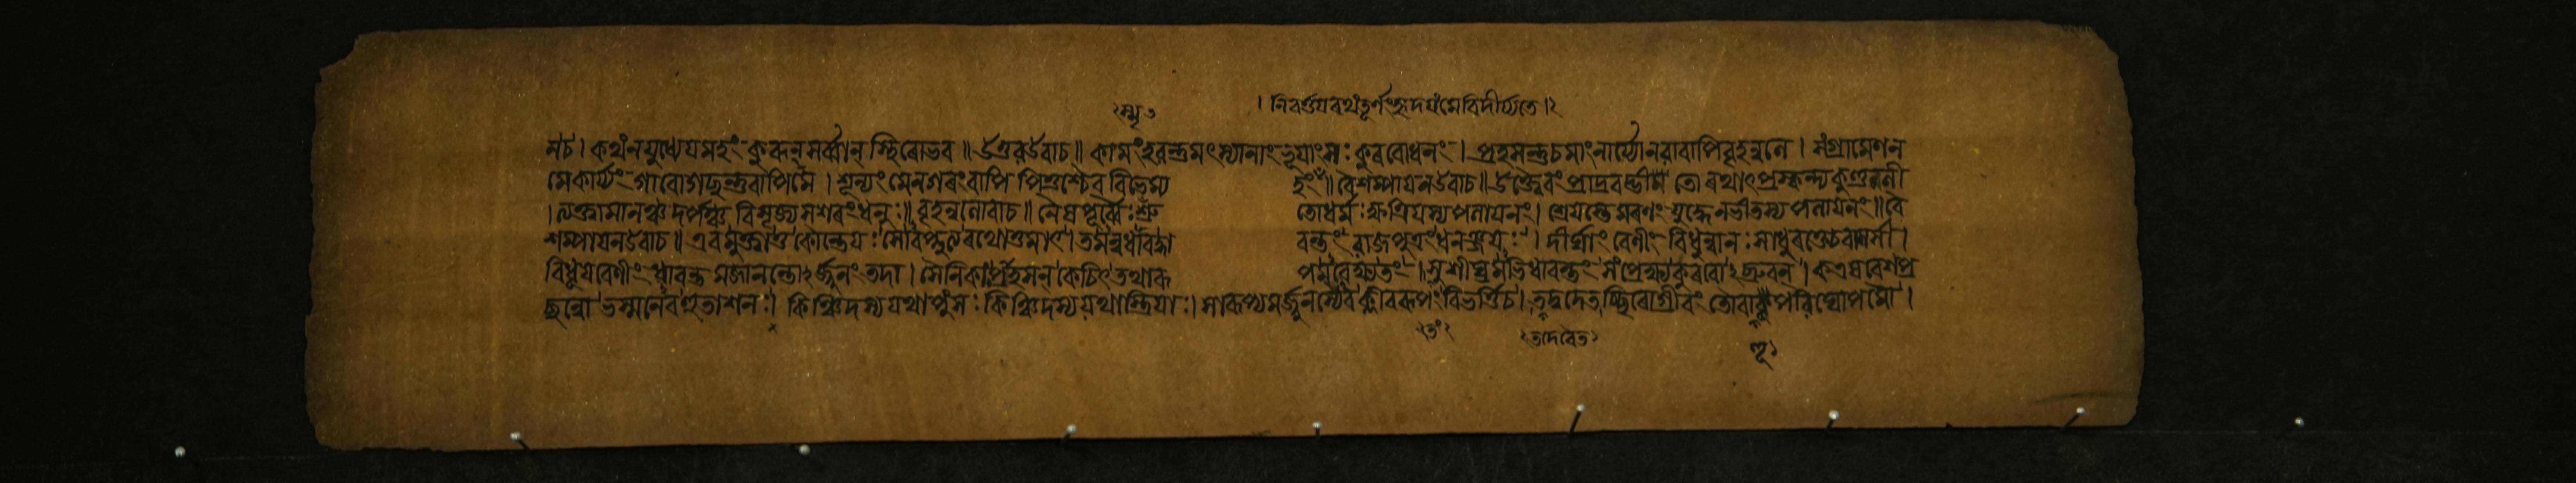 । নিবর্ত্তয়রথংতূর্ণংহৃদয়ংমেবিদীর্য্যতে।২
মচ। কথংনযুধ্যেয়মহং কুরূন্ সর্ব্বান্ স্থিরোভব॥ উত্তরউবাচ॥ কামংহরন্তুমৎস্যানাং ভূয়াংসঃ কুরবোধনং। প্রহসন্তুচমাংনার্য্যোনরাবাপিবৃহন্নলে। সংগ্রামেণন
মেকার্য্যং গাবোগচ্ছন্তুবাপিমে। শূন্যং মেনগরংবাপি পিতুশ্চৈব বিভেম্য হং॥ বৈশম্পায়নউবাচ॥ ইত্যুক্ত্বৈবং প্রাদ্রবদ্ভীতো রথাৎপ্রস্কন্দ্যকুণ্ডলী
।ত্যক্ত্বামানঞ্চ দর্পঞ্চ বিসৃজ্যসশরংধনুঃ॥ বৃহন্নলোবাচ॥ নৈষপূর্ব্বৈঃশ্রু তোধর্ম্মঃক্ষত্রিয়স্যপলায়নং। শ্রেয়স্তেমরণং যুদ্ধেনভীতস্যপলায়নং॥বৈ
শম্পায়নউবাচ॥ এবমুক্ত্বাতুকৌন্তেয়ঃসোবপ্লুত্যরথোত্তমাৎ। তমন্বধাবদ্ধা বন্তং রাজপুত্রং ধনঞ্জয়ঃ। দীর্ঘাং বেণীং বিধুন্বানঃসাধুরক্তেচবাসসী।
বিধূয়বেণীং ধাবন্তমজানন্তোঽর্জ্জুনং তদা। সৈনিকাঃপ্রাহসন্ কেচিৎ তথারূ পমবেক্ষ্যতং। তংশীঘ্রমভিধাবন্তং সংপ্রেক্ষ্যকুরবোঽব্রুবন্। কএষবেশপ্র
চ্ছন্নো ভস্মনেবহুতাশনঃ। কিঞ্চিদস্যযথাপুংসঃ কিঞ্চিদস্যযথাস্ত্রিয়াঃ। সারূপ্যমর্জ্জুনস্যেব ক্লীবরূপং বিভর্ত্তিচ। তদ্বদেতচ্ছিরোগ্রীবং তৌবাহূপরিঘোপমৌ।
২তং২
২তদেবৈত২
হূ২